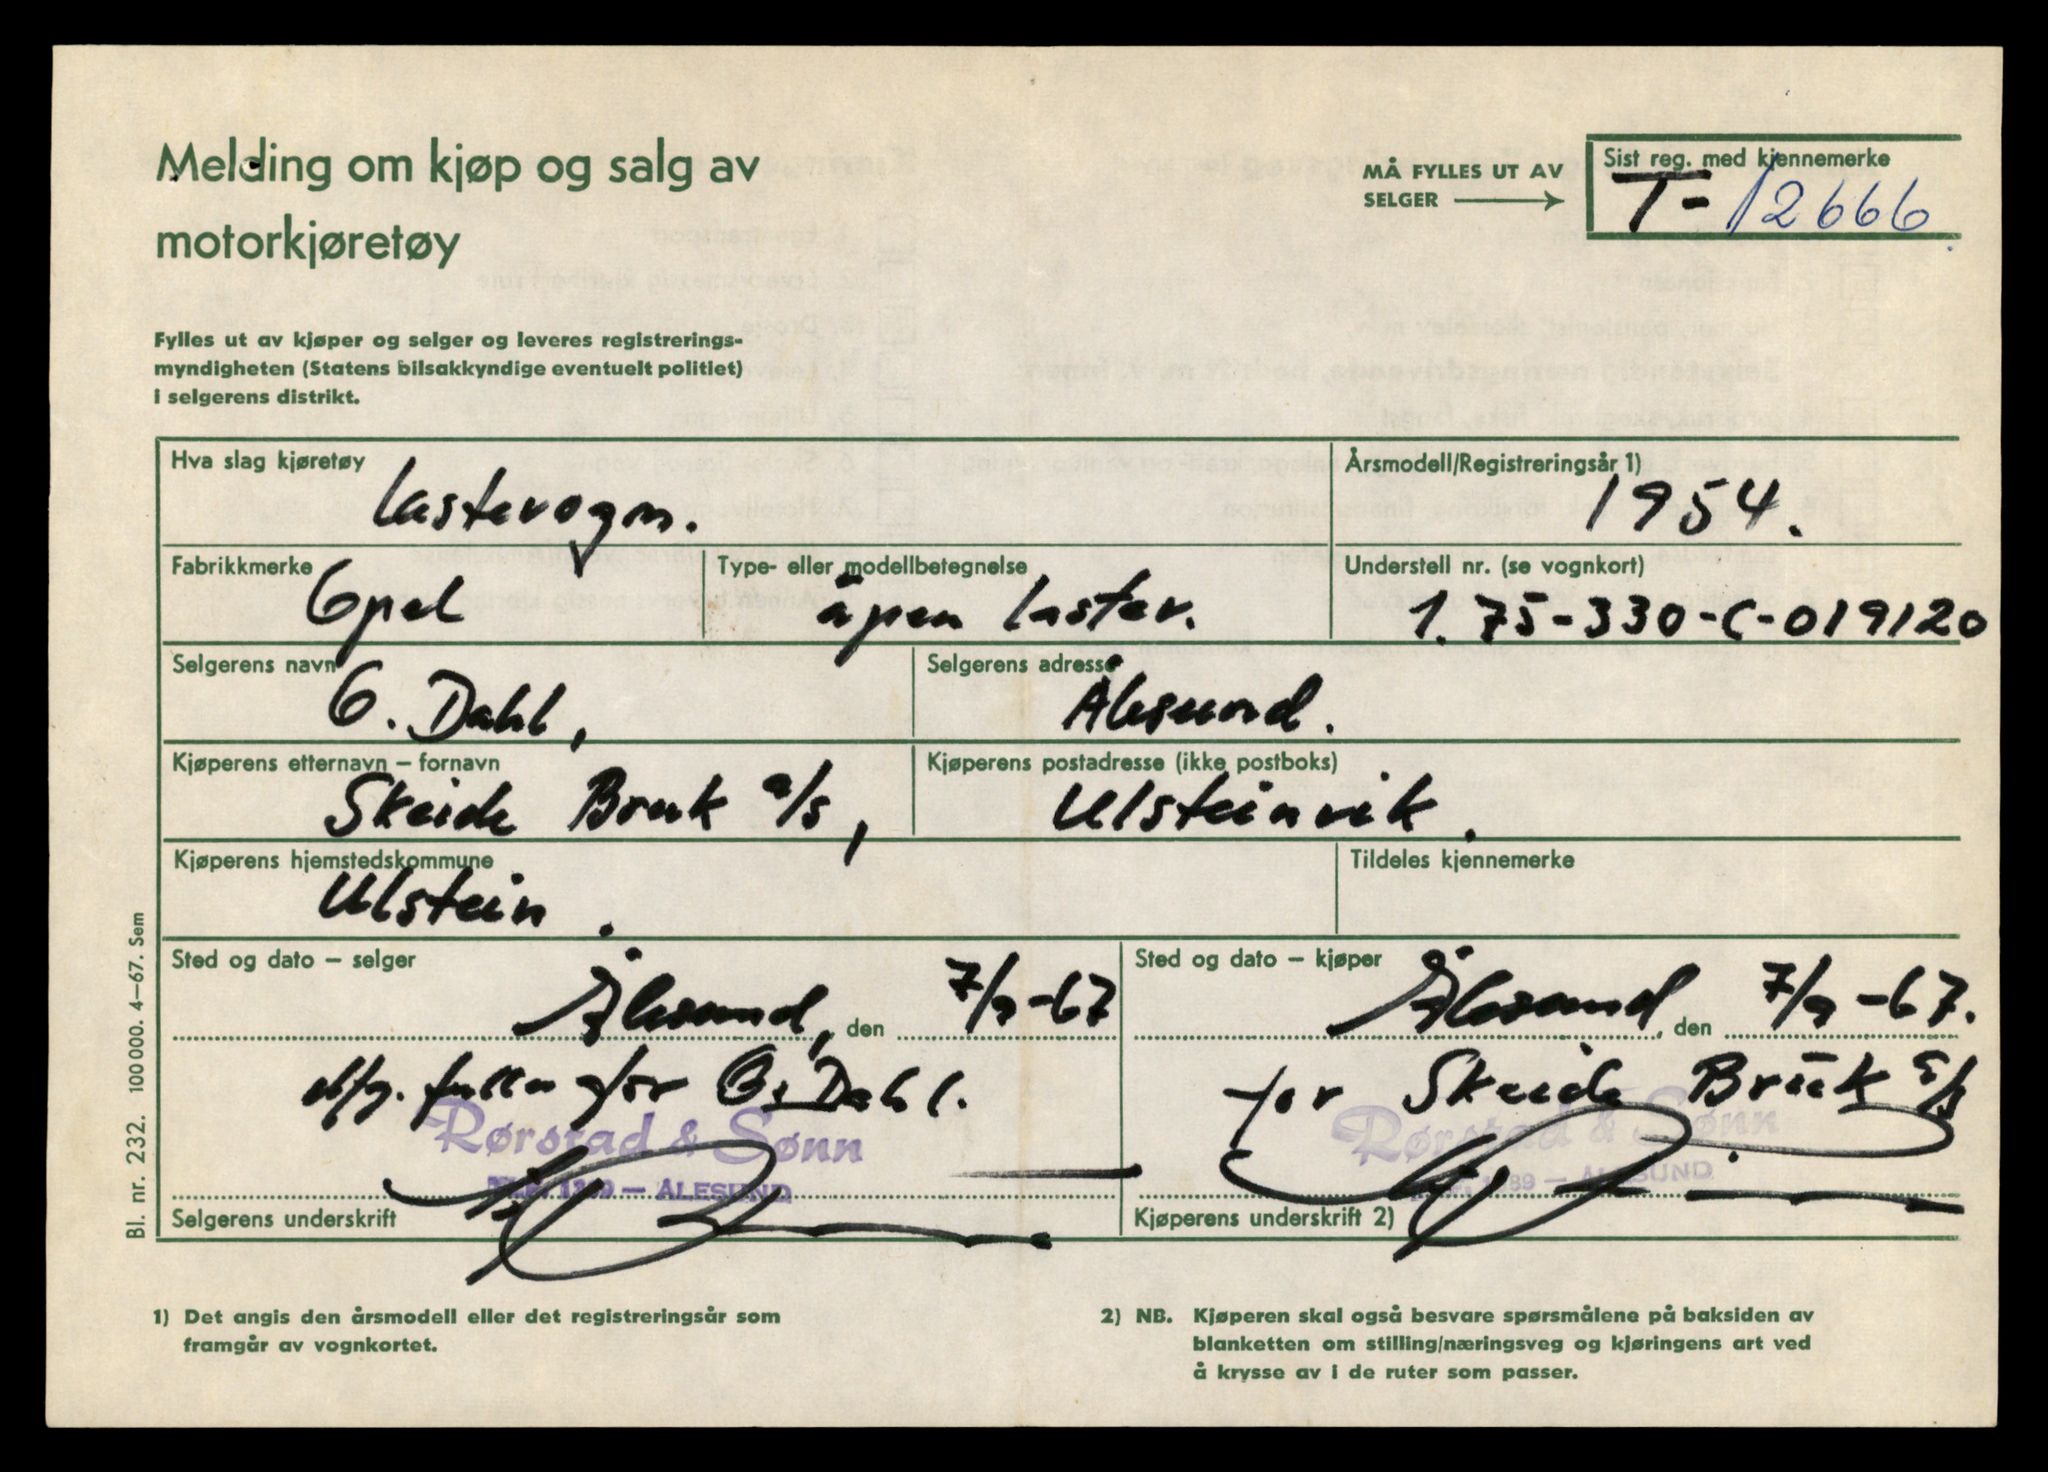 Melding om kjøp og salg av
motorkjøretøy
MÅ FYLLES UT AV
SELGER
Sist reg. med kjennemerke
T- 12666
Fylles ut av kjøper og selger og leveres registrerings-
myndigheten (Statens bilsakkyndige eventuelt politiet)
i selgerens distrikt.
Hva slag kjøretøy
Lastevogn.
Årsmodell/Registreringsår 1)
1954.
Fabrikkmerke
Opel
Type- eller modellbetegnelse
åpen laster.
Understell nr. (se vognkort)
1.75-330-C-019120
Selgerens navn
G. Dahl,
Selgerens adresse
Ålesund.
Kjøperens etternavn – fornavn
Skeide Bruk a/s,
Kjøperens postadresse (ikke postboks)
Ulsteinvik.
Kjøperens hjemstedskommune
Ulstein.
Tildeles kjennemerke
Sted og dato – selger
Ålesund, den 7/9-67
Sted og dato – kjøper
Ålesund, den 7/9-67.
for G. Dahl.
Rørstad & Sønn
ÅLESUND
Selgerens underskrift
for Skeide Bruk a/s
Rørstad & Sønn
ÅLESUND
Kjøperens underskrift 2)
Bl. nr. 232. 100 000. 4–67. Sem
1) Det angis den årsmodell eller det registreringsår som
framgår av vognkortet.
2) NB. Kjøperen skal også besvare spørsmålene på baksiden av
blanketten om stilling/næringsveg og kjøringens art ved
å krysse av i de ruter som passer.